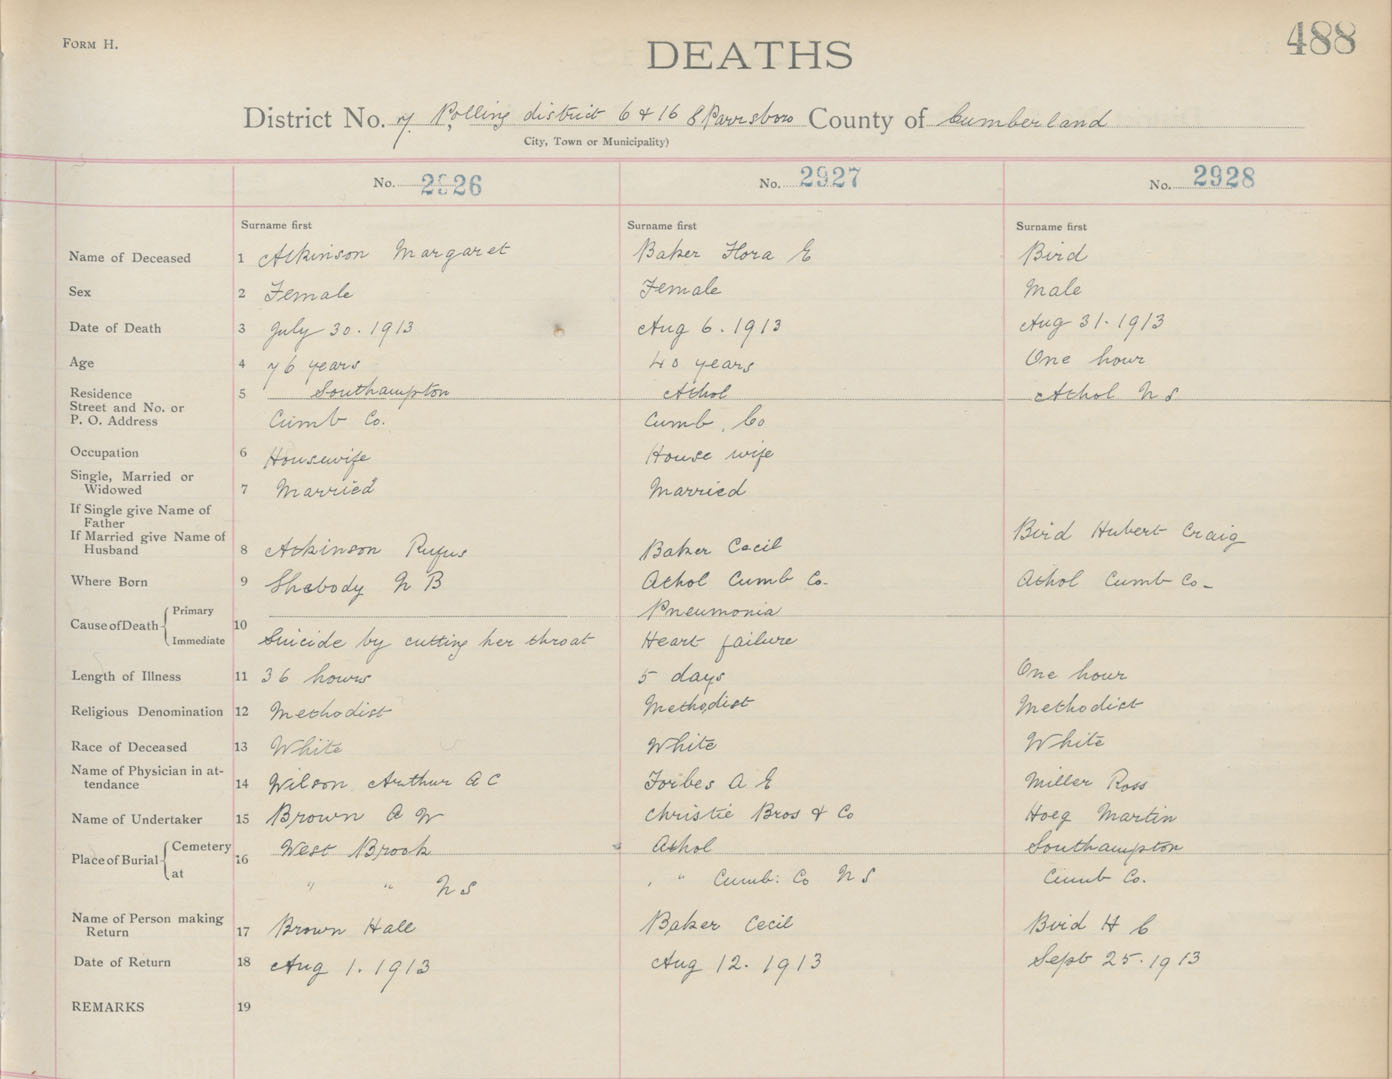 Form H.
488
DEATHS
District No. 7. Polling district 6 & 16 & Parrsboro County of Cumberland
City, Town or Municipality)
No. 2926 No. 2927 No. 2928
Surname first Surname first Surname first
Name of Deceased 1 Atkinson Margaret Baker Flora E Bird
Sex 2 Female Female Male
Date of Death 3 July 30. 1913 Aug 6. 1913 Aug 31. 1913
Age 4 76 years 40 years One hour
Residence 5 Southampton Athol Athol N S
Street and No. or
P. O. Address Cumb Co. Cumb. Co
Occupation 6 Housewife House wife
Single, Married or
Widowed 7 Married Married
If Single give Name of
Father Bird Hubert Craig
If Married give Name of
Husband 8 Atkinson Rufus Baker Cecil
Where Born 9 Shebody N B Athol Cumb Co. Athol Cumb Co.
Cause of Death Primary 10 Pneumonia
Immediate Suicide by cutting her throat Heart failure
Length of Illness 11 36 hours 5 days One hour
Religious Denomination 12 Methodist Methodist Methodist
Race of Deceased 13 White White White
Name of Physician in at-
tendance 14 Wilson Arthur A C Forbes A E Miller Ross
Name of Undertaker 15 Brown A W Christie Bros & Co Hoeg Martin
Place of Burial Cemetery 16 West Brook Athol Southampton
at " " N S " " Cumb. Co N S Cumb Co.
Name of Person making
Return 17 Brown Hall Baker Cecil Bird H C
Date of Return 18 Aug 1. 1913 Aug 12. 1913 Sept 25. 1913
REMARKS 19